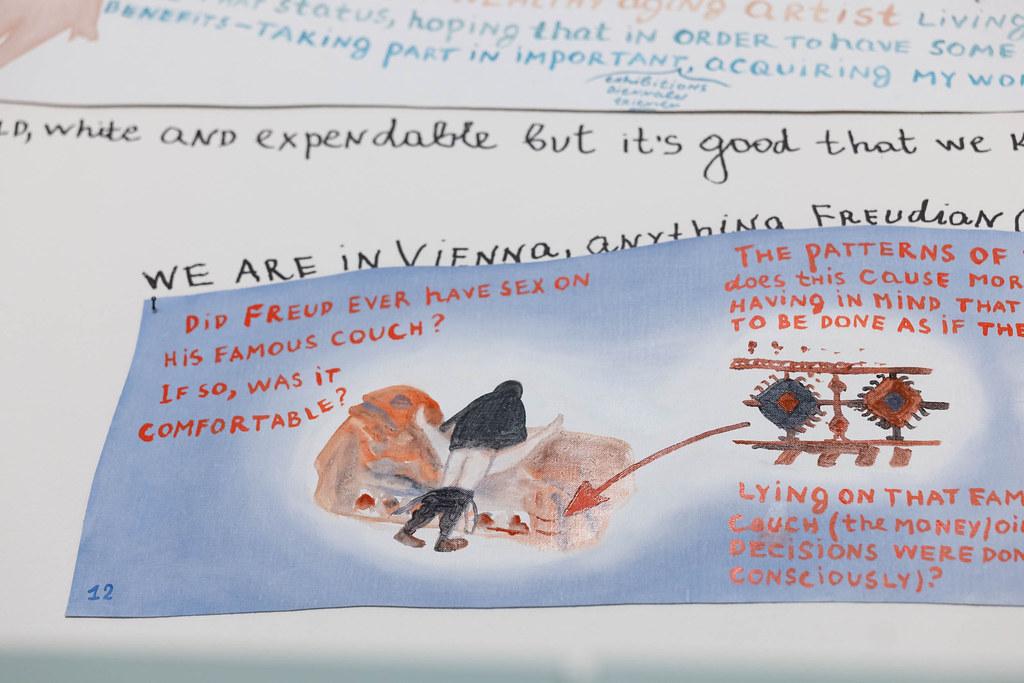 WEALTHY aging ARTIST LIVING
THAT STATUS, hoping that IN ORDER TO have SOME
BENEFITS-TAKING PART IN IMPORTANT, ACQUIRING MY
exhibitions
biennales
white AND expendable but it's good that we
WE ARE iN ViENNA, anything FREUDiAN
DiD FREUD EVER hAVE SEX ON
HiS FAMOUS COUCH?
IF SO, WAS iT
COMFORTABLE?
THE PATTERNS OF
does tHiS CAUSE
HAVING IN MIND THAT
TO BE DONE AS IF
LYING ON THAT
COUCH (the MONEY/
DECISIONS WERE
CONSCIOUSLY)?
12